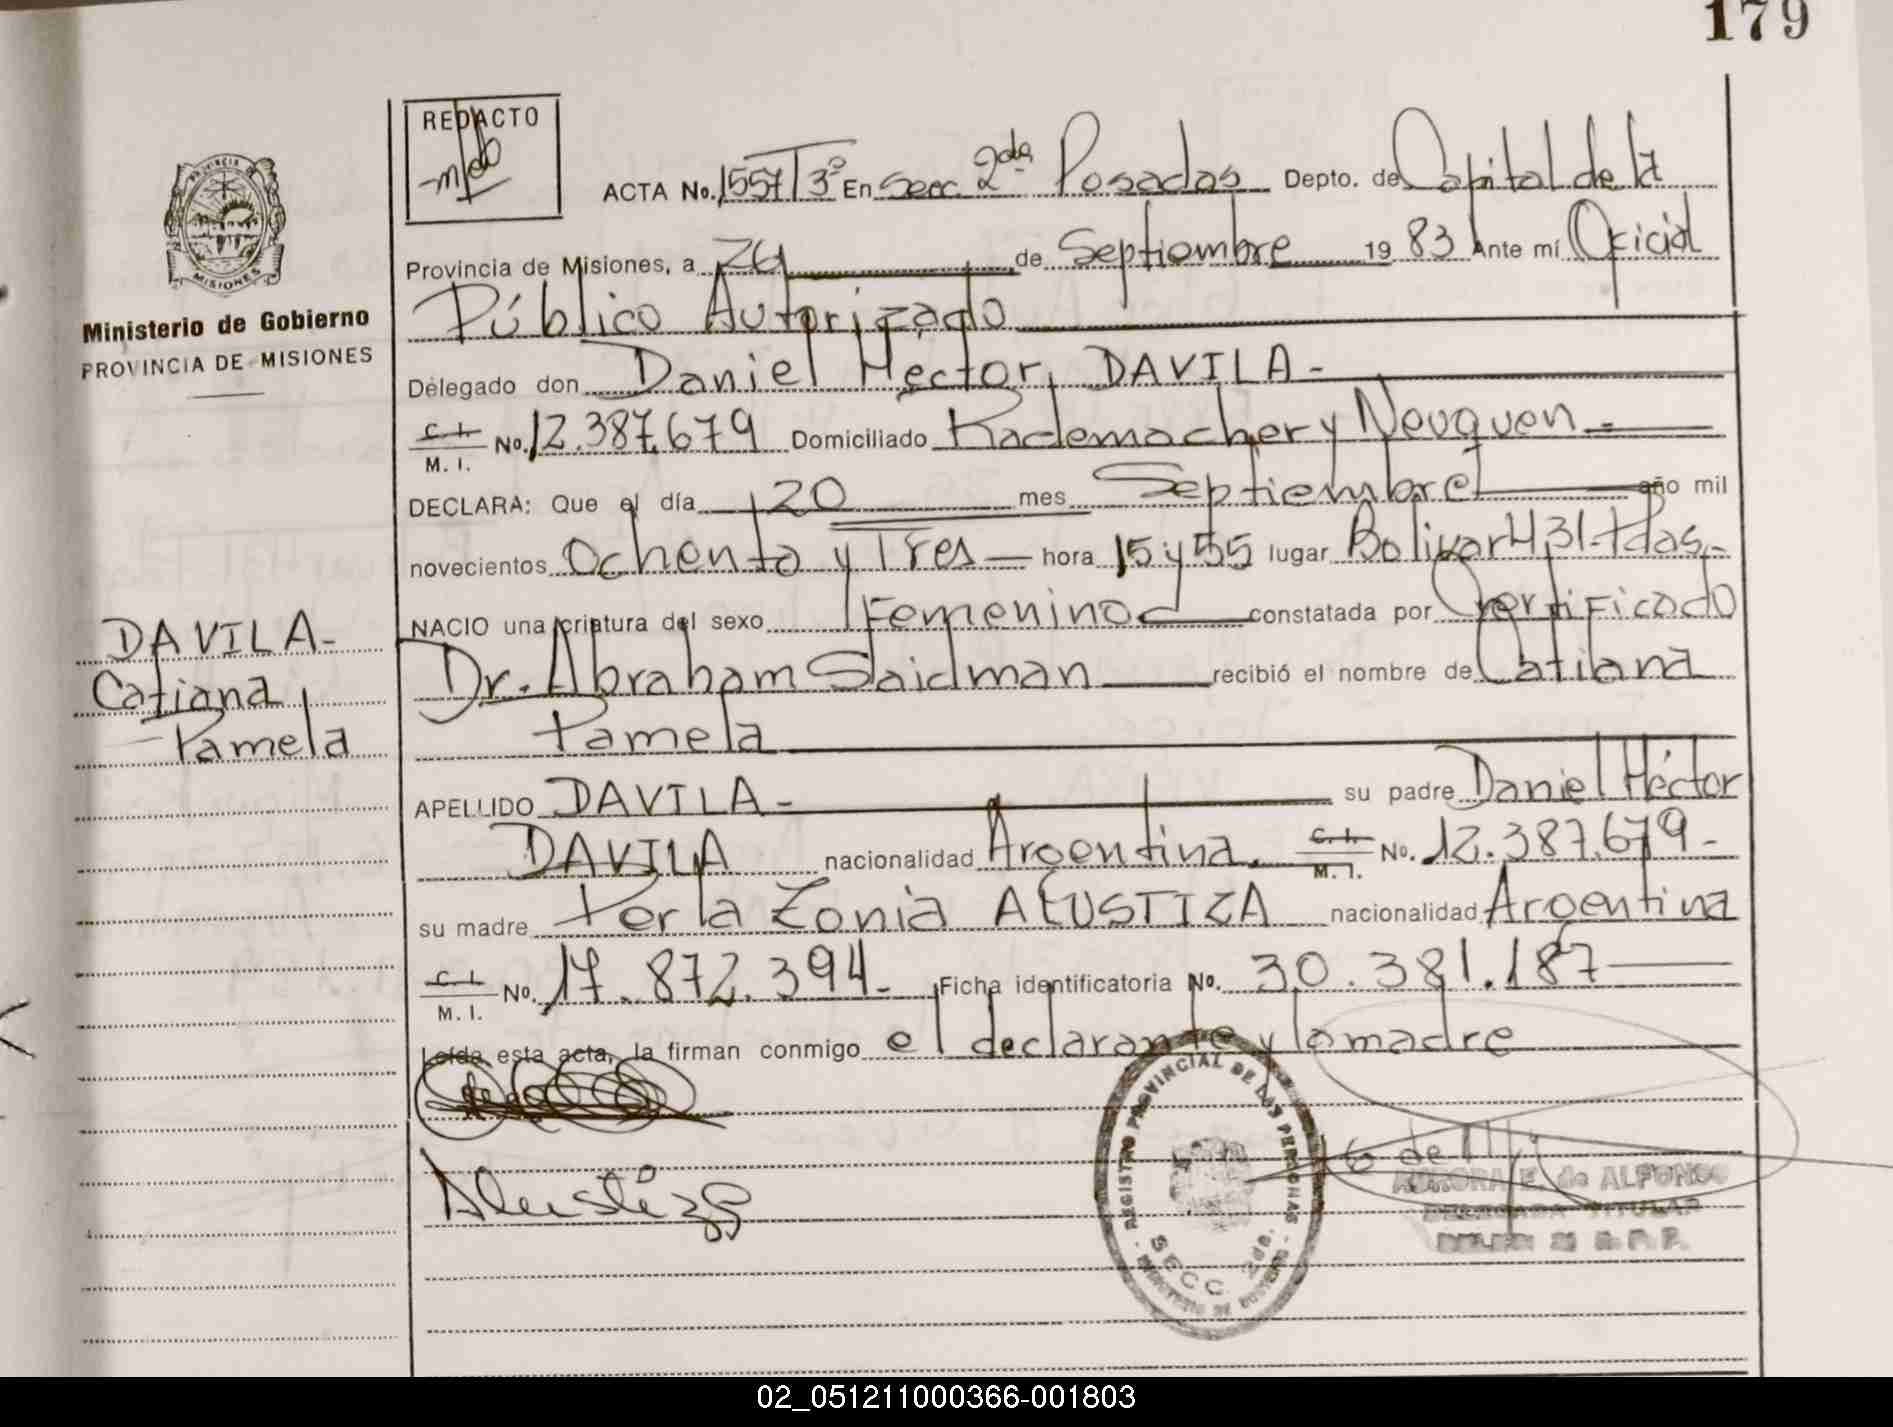 179
REDACTO
ACTA No. 1557 T 3º En Secc. 2da Posadas Depto. de Capital de la
Provincia de Misiones, a de Septiembre 19 83 Ante mí Oficial
Público Autorizado
Ministerio de Gobierno
PROVINCIA DE MISIONES
Delegado don Daniel Hector, DAVILA-
C. I. M. I. No. 12.387.679 Domiciliado Rademacher y Neuquen.-
DECLARA: Que el día 20 mes Septiembre año mil
novecientos Ochenta y Tres hora 15 y 55 lugar Bolivar 431-Pdas.-
NACIO una criatura del sexo Femenino constatada por Certificado
Dr. Abraham Saidman recibió el nombre de Catiana
Pamela
DAVILA-
Catiana
Pamela
APELLIDO DAVILA- su padre Daniel Héctor
DAVILA nacionalidad Argentina. C. I. M. I. No. 12.387.679-
su madre Perla Zonia ALUSTIZA nacionalidad Argentina
C. I. M. I. No. 17.872.394- Ficha identificatoria No. 30.381.187
Leída esta acta, la firman conmigo el declarante y la madre
Alustiza
REGISTRO PROVINCIAL DE LAS PERSONAS
SECC. 2da.
MINISTERIO DE GOBIERNO
AURORA E. de ALFONSO
DELEGADA TITULAR
02_051211000366-001803